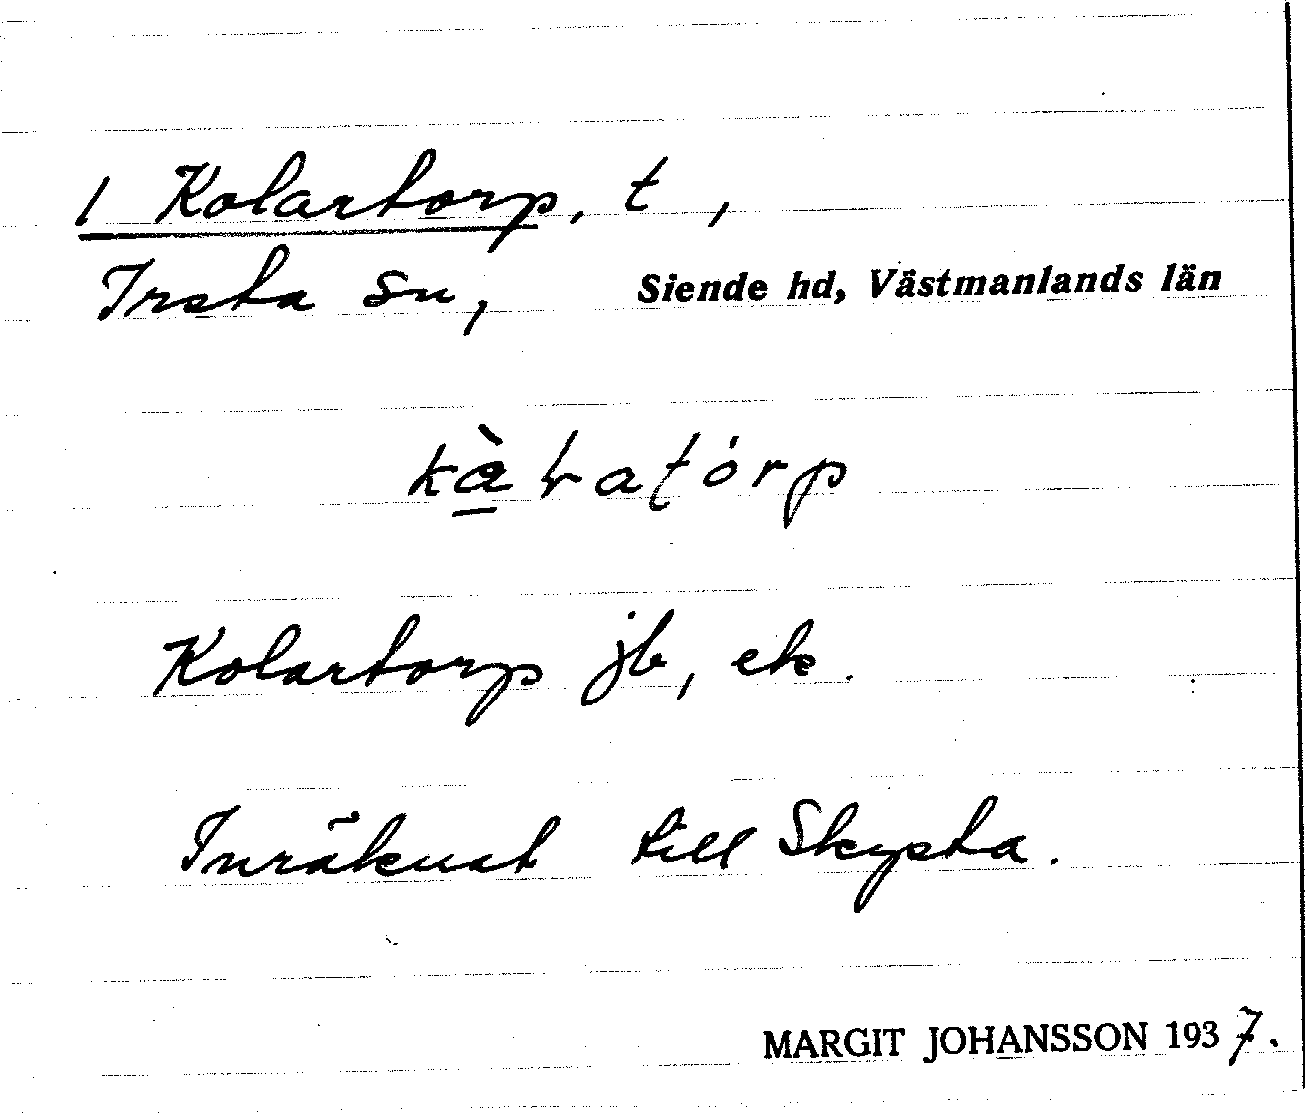 1 Kolartorp, t ,
Irsta sn, Siende hd, Västmanlands län
Kolartorp jb, ek.
Inräknat till Skysta.
MARGIT JOHANSSON 1937.